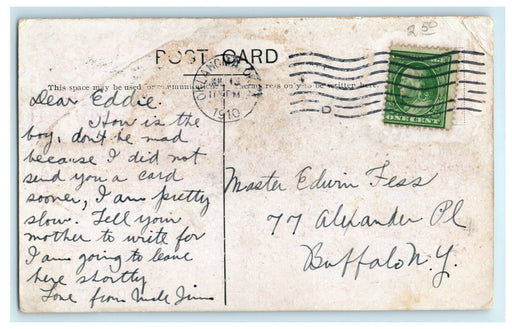 2 50
POST CARD
This space may be used for communication. Address only to be written here.
OKLAHOMA
PM
1910
D
ONE CENT
Dear Eddie.
How is the
boy, don't be mad
because I did not
send you a card
sooner, I am pretty
slow. Tell your
mother to write for
I am going to leave
here shortly
Love from Uncle Jim
Master Edwin Fess
77 Alexander Pl
Buffalo N.Y.